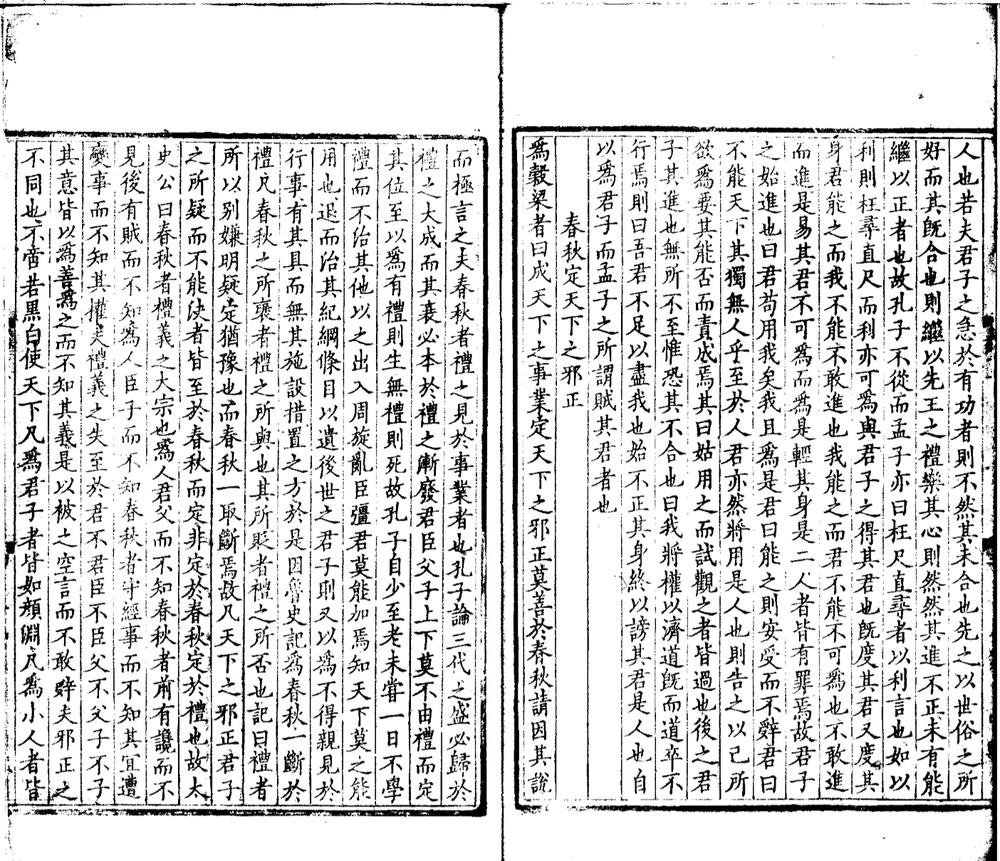 人也若夫君子之急於有功者則不然其未合也先之以世俗之所
好而其旣合也則繼以先王之禮樂其心則然然其進不正未有能
繼以正者也故孔子不從而孟子亦曰枉尺直尋者以利言也如以
利則枉尋直尺而利亦可爲與君子之得其君也旣度其君又度其
身君能之而我不能不敢進也我能之而君不能不可爲也不敢進
而進是易其君不可爲而爲是輕其身是二人者皆有罪焉故君子
之始進也曰君苟用我矣我且爲是君曰能之則安受而不辭君曰
不能天下其獨無人乎至於人君亦然將用是人也則告之以己所
欲爲要其能否而責成焉其曰姑用之而試觀之者皆過也後之君
子其進也無所不至惟恐其不合也曰我將權以濟道旣而道卒不
行焉則曰吾君不足以盡我也始不正其身終以謗其君是人也自
以爲君子而孟子之所謂賊其君者也
春秋定天下之邪正
爲穀梁者曰成天下之事業定天下之邪正莫善於春秋請因其說
而極言之夫春秋者禮之見於事業者也孔子論三代之盛必歸於
禮之大成而其衰必本於禮之漸廢君臣父子上下莫不由禮而定
其位至以爲有禮則生無禮則死故孔子自少至老未嘗一日不學
禮而不治其他以之出入周旋亂臣彊君莫能加焉知天下莫之能
用也退而治其紀綱條目以遺後世之君子則又以爲不得親見於
行事有其具而無其施設措置之方於是因魯史記爲春秋一斷於
禮凡春秋之所褒者禮之所與也其所貶者禮之所否也記曰禮者
所以別嫌明疑定猶豫也而春秋一取斷焉故凡天下之邪正君子
之所疑而不能决者皆至於春秋而定非定於春秋定於禮也故太
史公曰春秋者禮義之大宗也爲人君父而不知春秋者前有讒而不
見後有賊而不知爲人臣子而不知春秋者守經事而不知其宜遭
變事而不知其權夫禮義之失至於君不君臣不臣父不父子不子
其意皆以爲善爲之而不知其義是以被之空言而不敢辭夫邪正之
不同也不啻若黑白使天下凡爲君子者皆如顏淵凡爲小人者皆